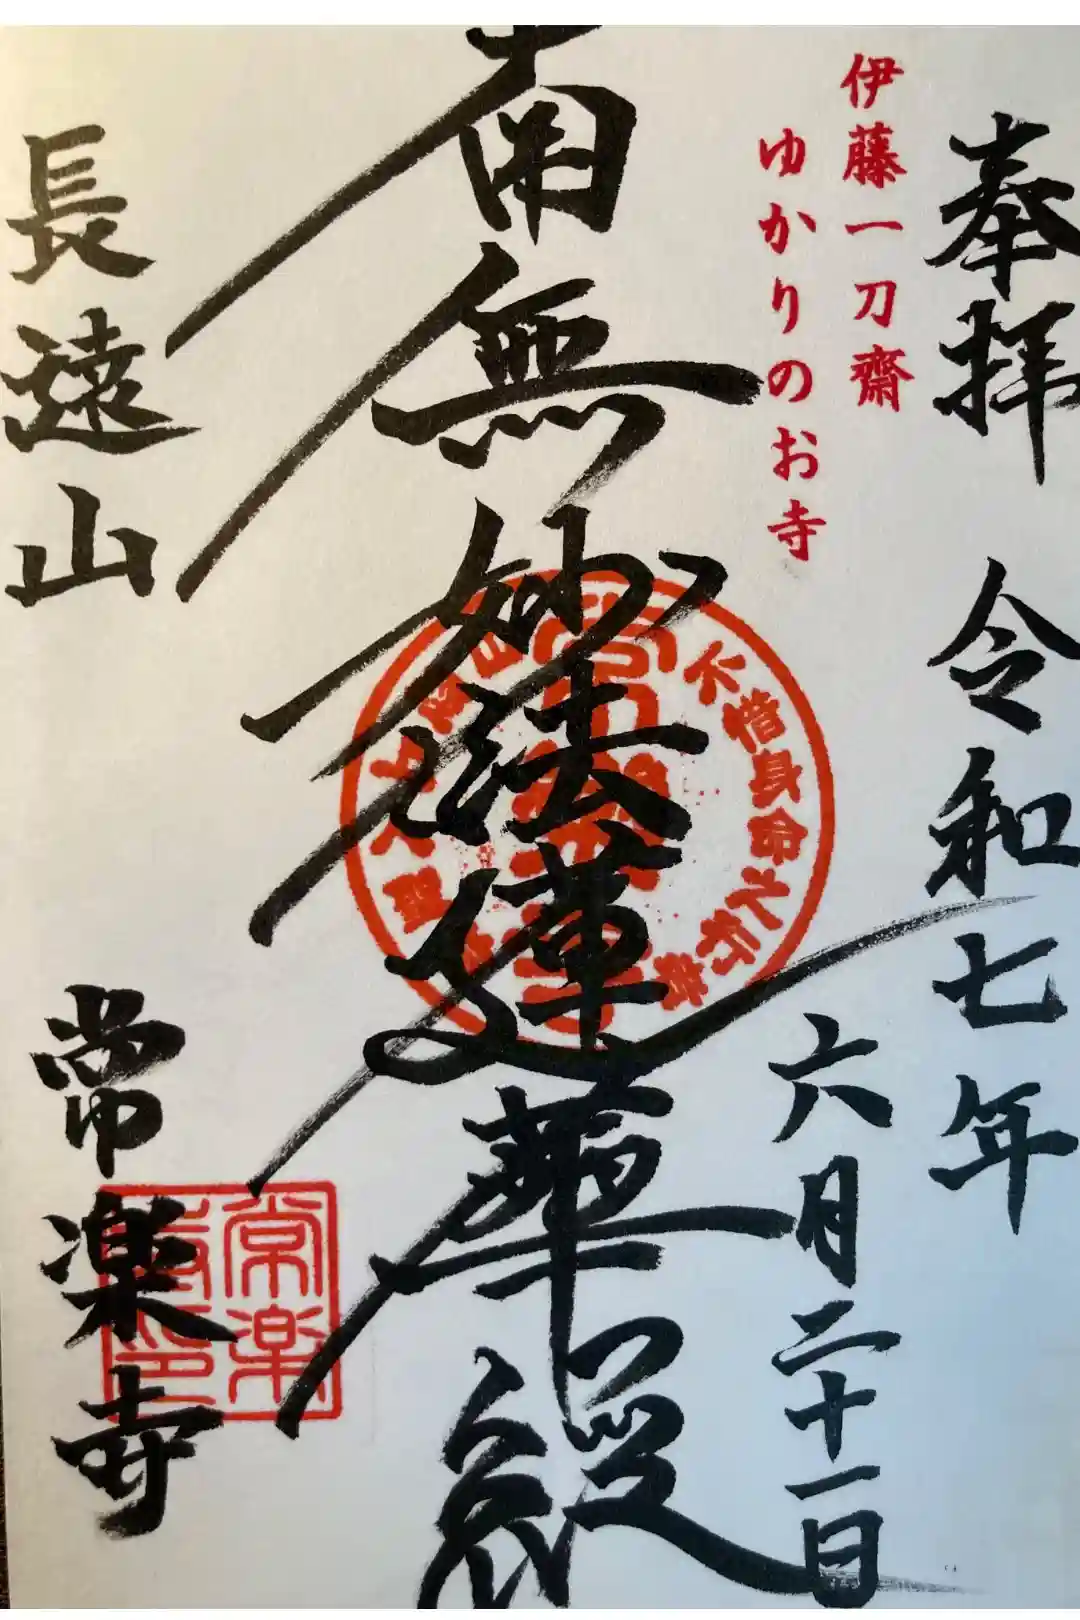 奉拝 令和七年
六月二十一日
伊藤一刀齋
ゆかりのお寺
南無妙法蓮華経
不惜身命之行者
長遠山
常楽寺
常楽
寺印